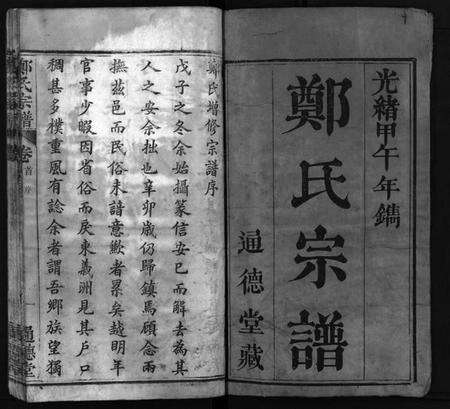 光緒甲午年鐫
鄭氏宗譜
通德堂藏
鄭氏增修宗譜序
戊子之冬余始攝篆信安已而解去為其
人之安余拙也辛卯歲仍歸鎮焉顧念兩
撫茲邑而民俗未諳意歉者累矣越明年
官事少暇因省俗而戾東義洲見其戶口
稠甚多樸重風有諗余者謂吾鄉族望獨
鄭氏宗譜
卷首
通德堂